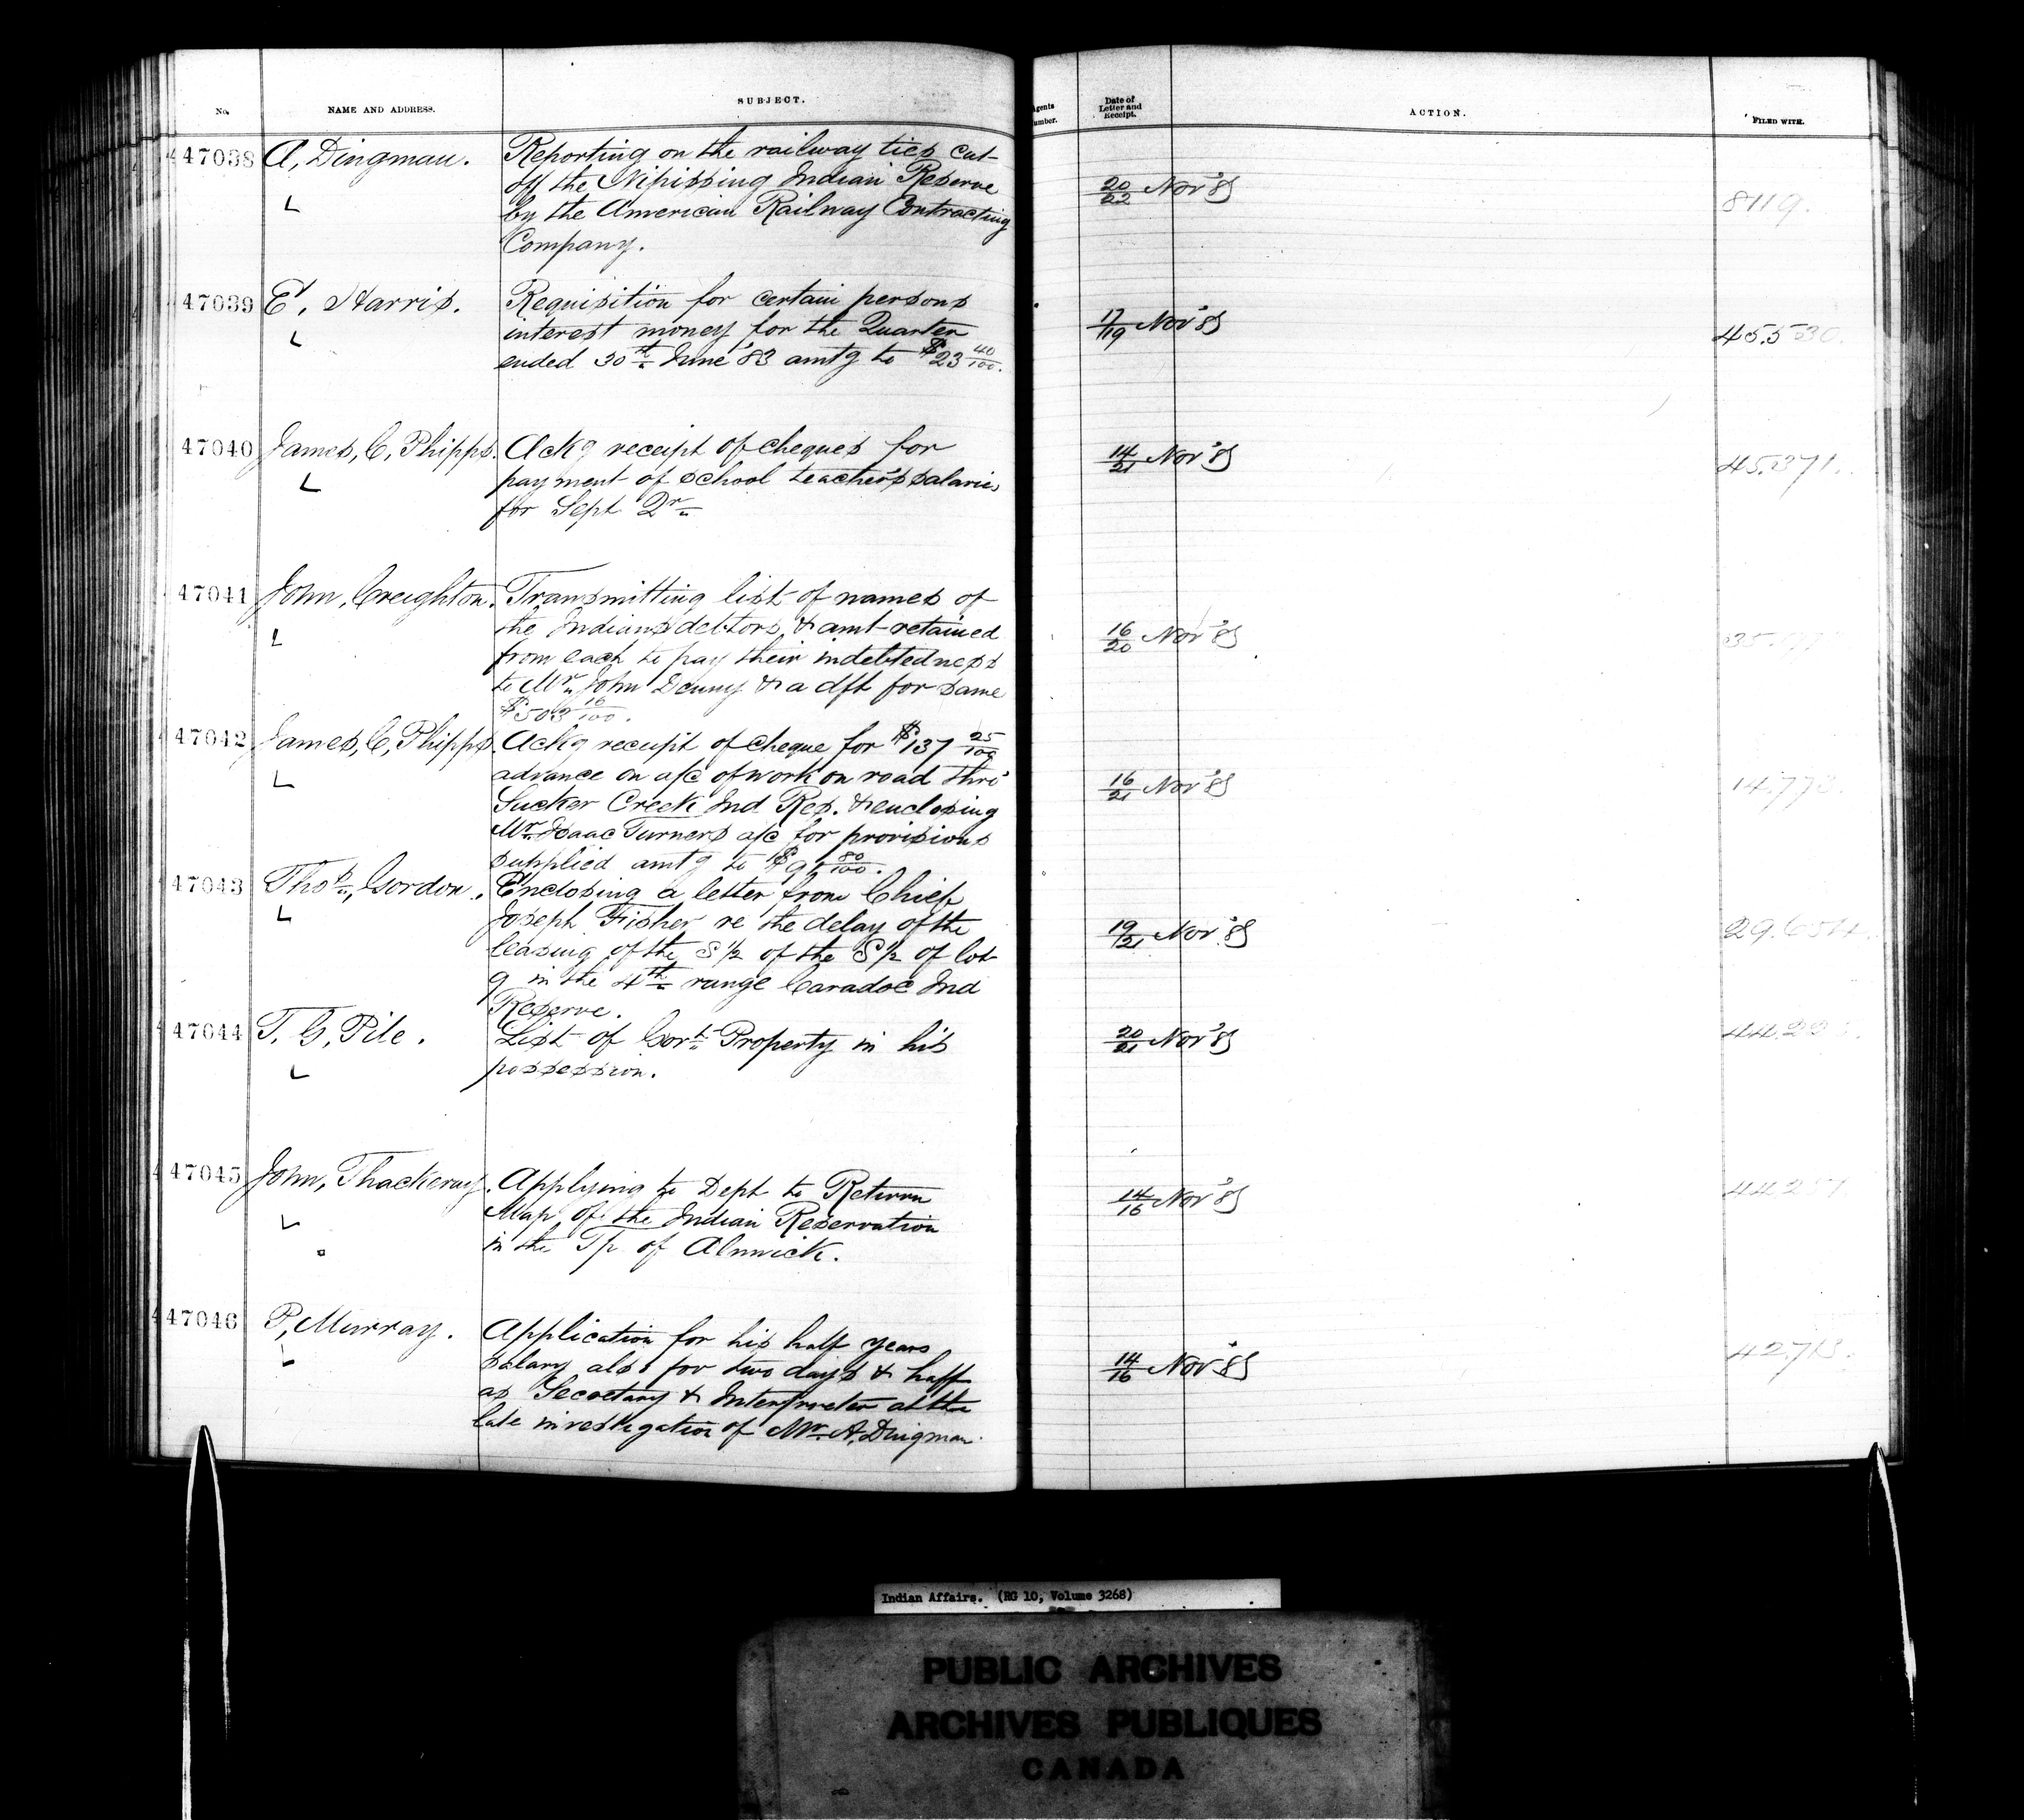 No. NAME AND ADDRESS. SUBJECT. Agents Number. Date of Letter and Receipt. ACTION. FILED WITH.
47038 A, Dingman. Reporting on the railway ties cut
off the Nipissing Indian Reserve 20/22 Nov '83
by the American Railway Contracting 8119.
Company.
47039 E, Harris. Requisition for certain persons
interest money for the Quarter 17/19 Nov '83
ended 30th June '83 amtg to $23 40/100. 45.530.
47040 James, C, Phipps. Ackg receipt of cheques for 14/21 Nov '83
payment of school teacher's salaries 45.371.
for Sept Qr
47041 John, Creighton. Transmitting list of names of
the Indians debtors, & amt retained 16/20 Nov '83
from each to pay their indebtedness
to Mr John Denny & a dft for same
$503 16/100.
47042 James, C, Phipps. Ackg receipt of cheque for $137 25/100
advance on a/c of work on road thro' 16/21 Nov '83 14.773.
Sucker Creek Ind Res. & enclosing
Mr Isaac Turners a/c for provisions
supplied amtg to $91 80/100.
47043 Thos, Gordon. Enclosing a letter from Chief
Joseph Fisher re the delay of the 19/21 Nov '83
leasing of the S 1/2 of the S 1/2 of lot
9 in the 4th range Caradoc Ind
Reserve.
47044 T. G, Pile. List of Govt Property in his 20/21 Nov '83
possession.
47045 John, Thackeray. Applying to Dept to Return 14/16 Nov '83
Map, of the Indian Reservation
in the Tp of Alnwick.
47046 P, Murray. Application for his half years
salary also for two days & half 14/16 Nov '83 42.713.
as Secretary & Interpreter at the
late investigation of Mr. A, Dingman.
Indian Affairs. (RG 10, Volume 3268)
PUBLIC ARCHIVES
ARCHIVES PUBLIQUES
CANADA